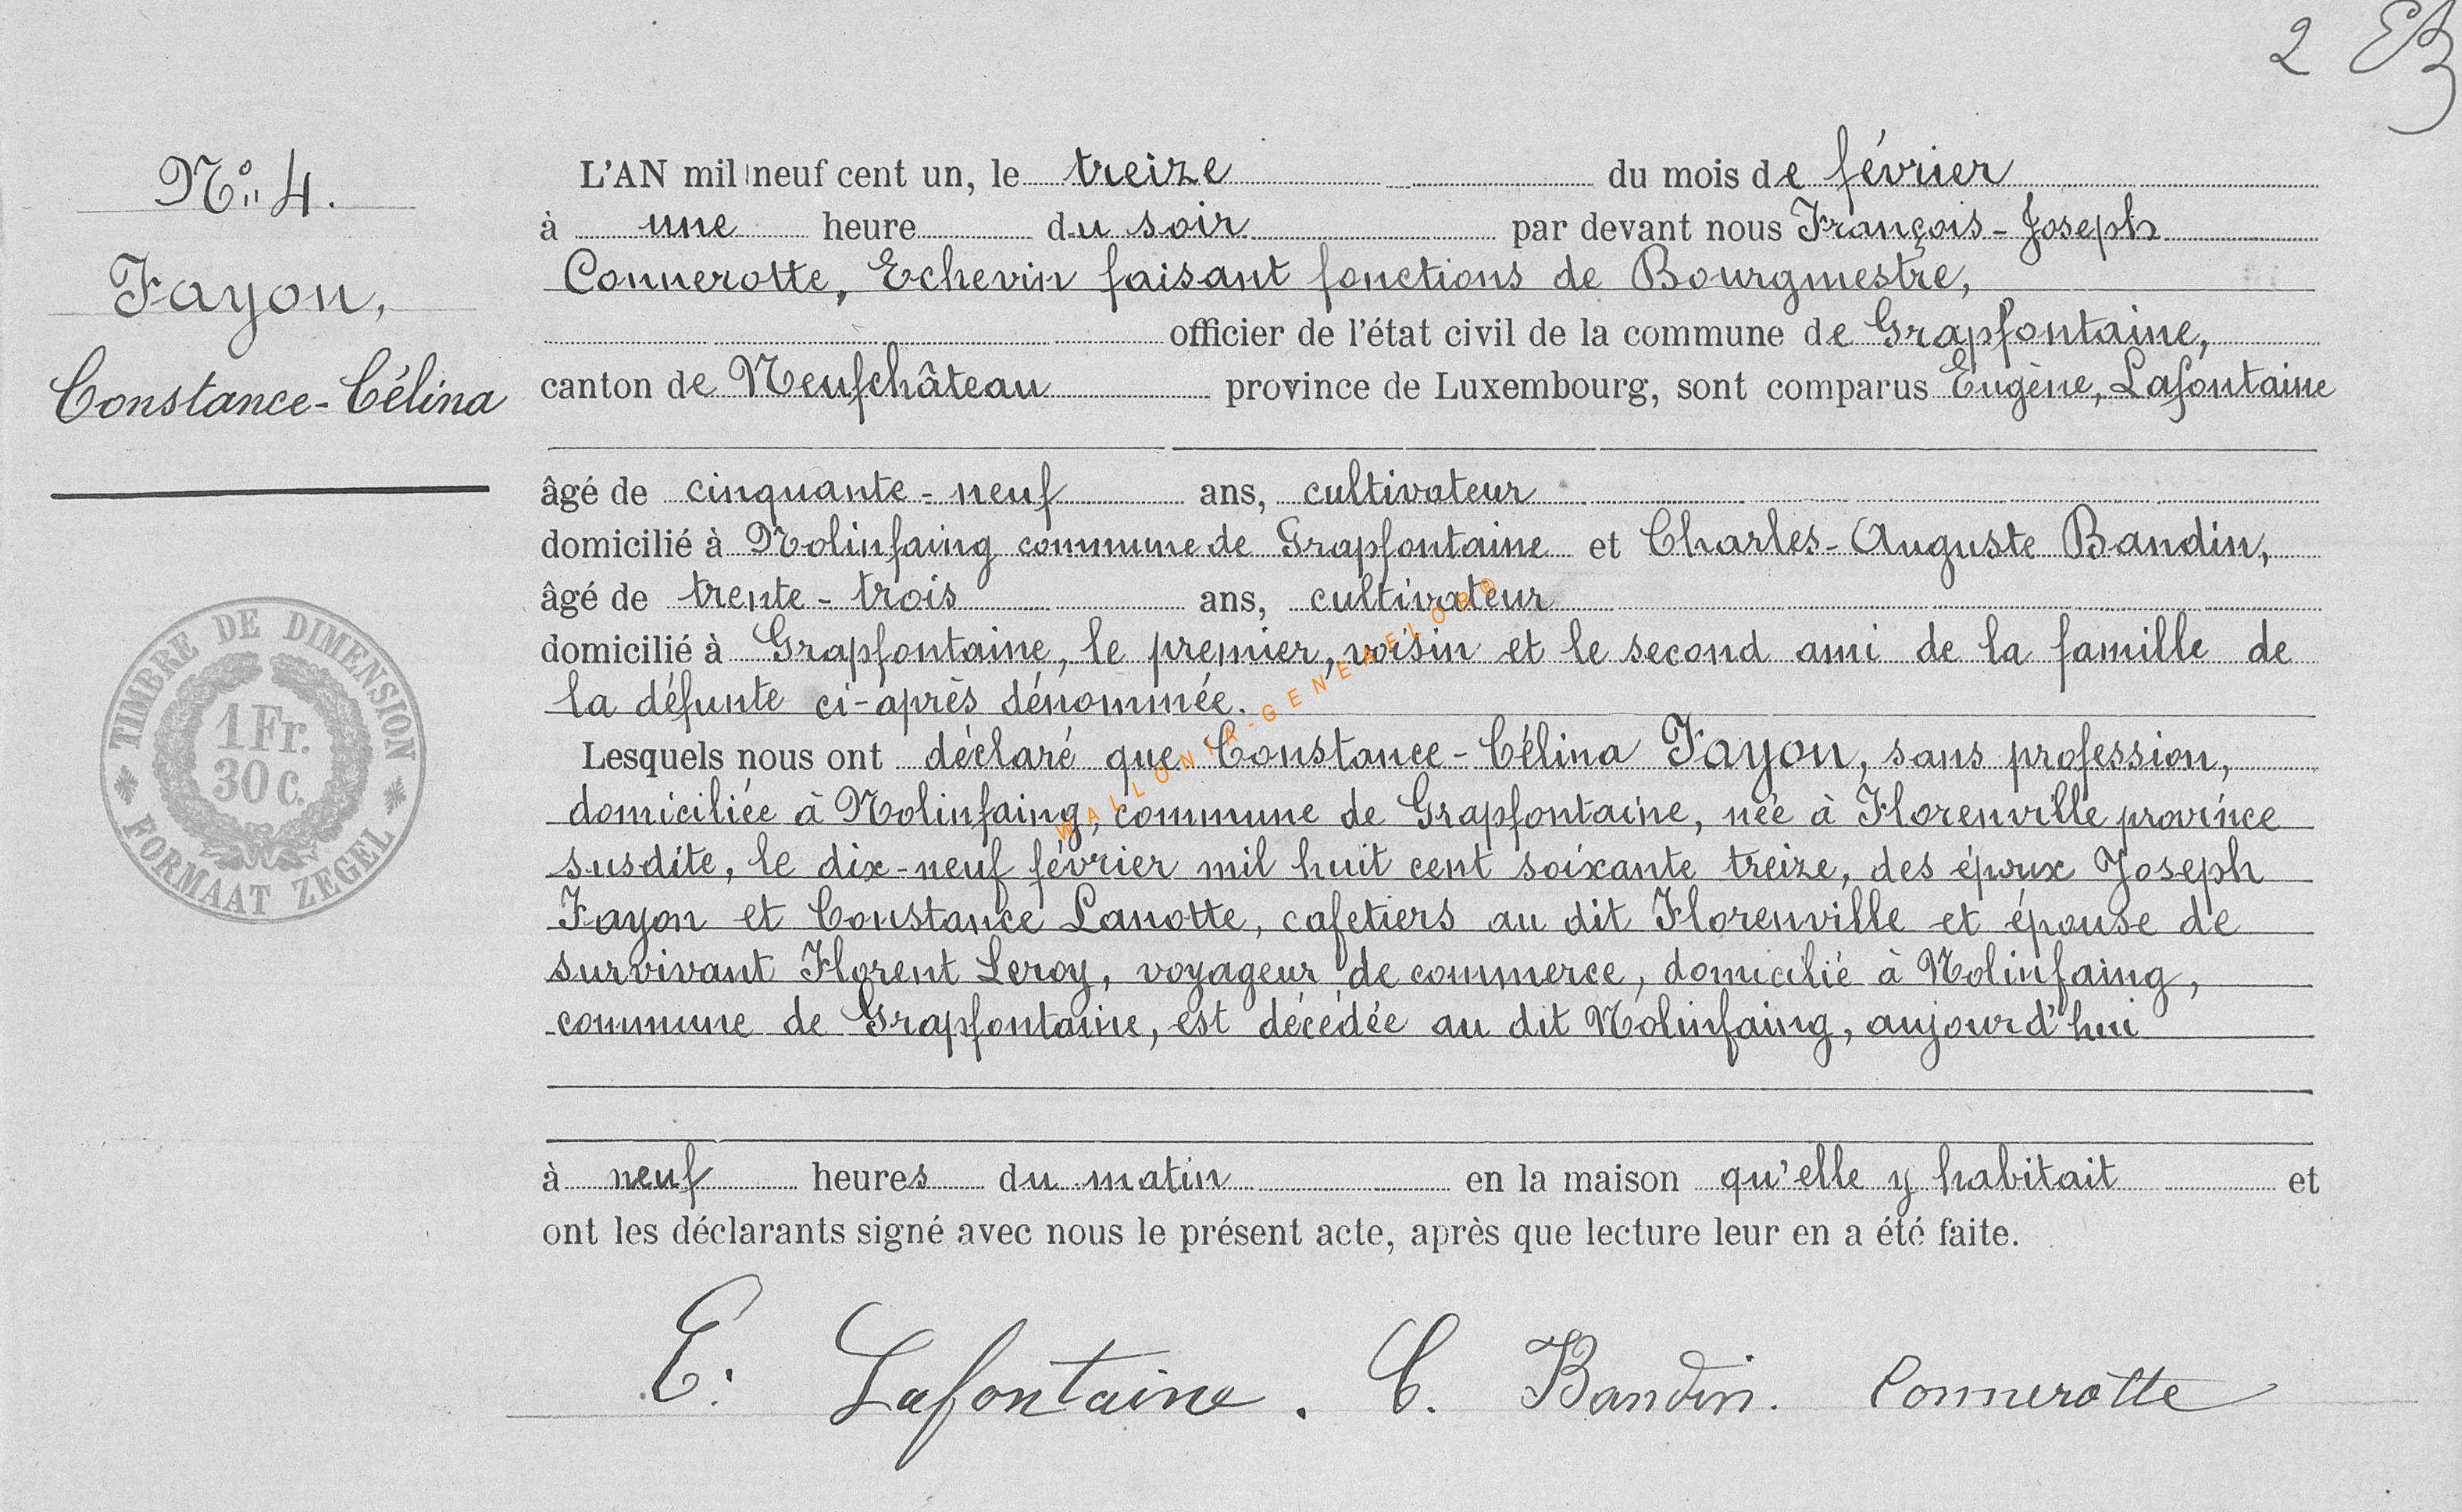 2 EB
N° 4.
Fayon,
Constance-Célina
TIMBRE DE DIMENSION
1 Fr.
30 c.
FORMAAT ZEGEL
L'AN mil neuf cent un, le treize du mois de février
à une heure du soir par devant nous François-Joseph
Connerotte, Echevin faisant fonctions de Bourgmestre,
officier de l'état civil de la commune de Grapfontaine,
canton de Neufchâteau province de Luxembourg, sont comparus Eugène, Lafontaine
âgé de cinquante-neuf ans, cultivateur
domicilié à Nolinfaing commune de Grapfontaine et Charles-Auguste Bandin,
âgé de trente-trois ans, cultivateur
domicilié à Grapfontaine, le premier, voisin et le second ami de la famille de
la défunte ci-après dénommée.
Lesquels nous ont déclaré que Constance-Célina Fayon, sans profession,
domiciliée à Nolinfaing, commune de Grapfontaine, née à Florenville province
susdite, le dix-neuf février mil huit cent soixante treize, des époux Joseph
Fayon et Constance Lanotte, cafetiers au dit Florenville et épouse de
survivant Florent Leroy, voyageur de commerce, domicilié à Nolinfaing,
commune de Grapfontaine, est décédée au dit Nolinfaing, aujourd'hui
à neuf heures du matin en la maison qu'elle y habitait et
ont les déclarants signé avec nous le présent acte, après que lecture leur en a été faite.
E. Lafontaine. C. Bandin. Connerotte
WALLONIA-GENEAFLOR®